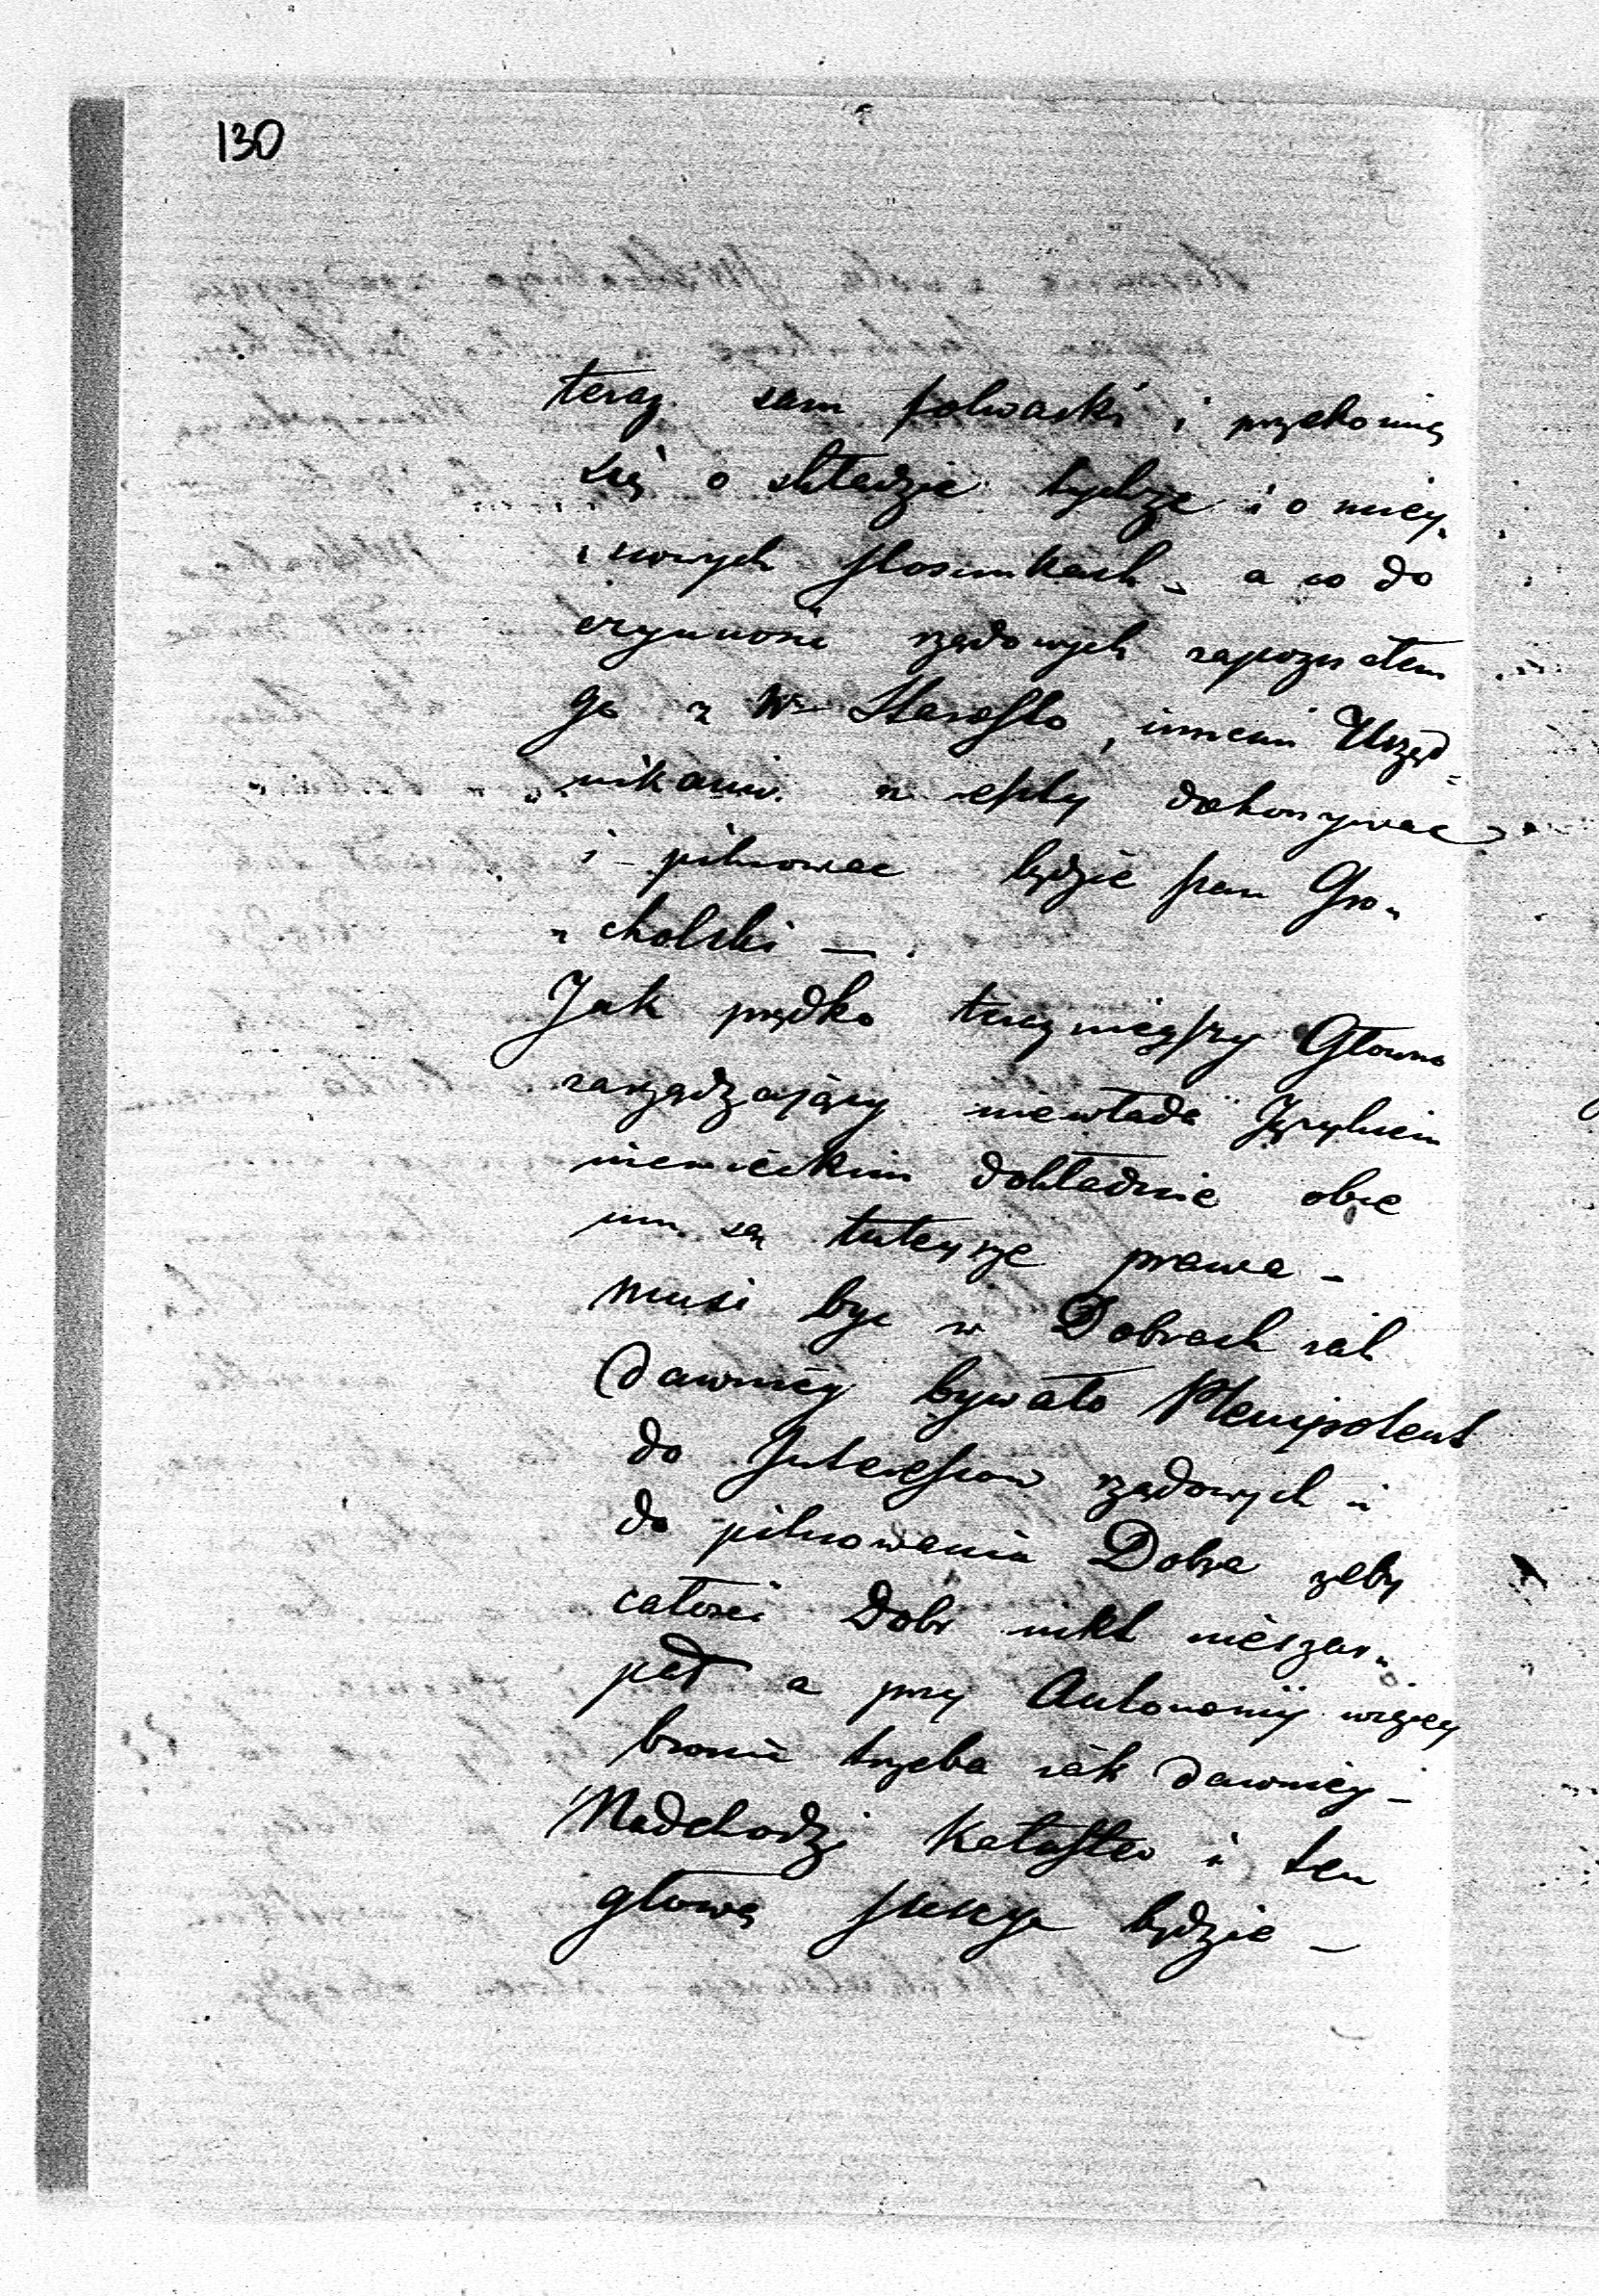 130
teraz sam folwarki i przekonią
się o składzie bydzę i o miey„
„scowych stosunkach – a co do
czynnosci rządowych zapoznałem
go z Wm Starostą, innemi Urzęd=
„nikami. a resztę dokonywac
i pilnowac będzie pan Gro„
„cholski —
Jak prędko teraznieyszy Głowno
zarządzający niewłada Językiem
niemieckim dokładnie obce
mu są tuteysze prawa –
musi byc w Dobrach iak
dawniéy bywało Plenipotent
do Interessow rządowych i
do pilnowania Dobra zeby
całosci Dobr nikt nieszar„
pał a przy Autonomij więcey
bronic trzeba iak dawniey –
Nadchodzi Kataster i ten
głową będzie –